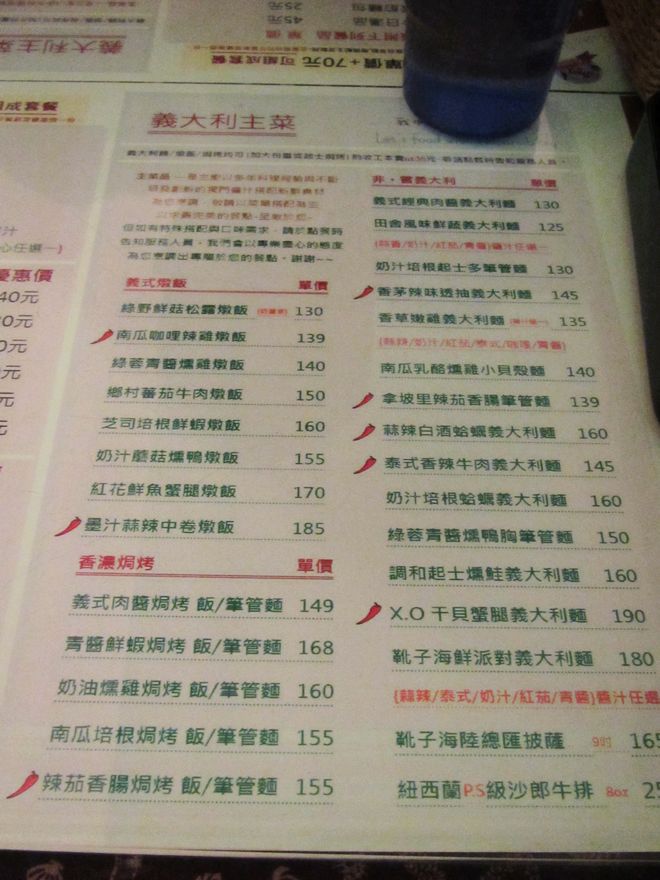 義大利主菜
單價+70元 可組成套餐
45元
25元
組成套餐
心任選一)
優惠價
40元
義大利主菜
主菜品 一 是主廚以多年料理經驗與不斷
研發創新的獨門醬汁搭配新鮮食材
為您烹調，敬請以簡單搭配為主
以求最完美的餐點~呈獻於您~
但如有特殊搭配與口味需求，請於點餐時
告知服務人員，我們會以專業盡心的態度
為您烹調出專屬於您的餐點。謝謝~~
義式燉飯 單價
綠野鮮菇松露燉飯 130
南瓜咖哩辣雞燉飯 139
綠蓉青醬燻雞燉飯 140
鄉村蕃茄牛肉燉飯 150
芝司培根鮮蝦燉飯 160
奶汁蘑菇燻鴨燉飯 155
紅花鮮魚蟹腿燉飯 170
墨汁蒜辣中卷燉飯 185
香濃焗烤 單價
義式肉醬焗烤 飯/筆管麵 149
青醬鮮蝦焗烤 飯/筆管麵 168
奶油燻雞焗烤 飯/筆管麵 160
南瓜培根焗烤 飯/筆管麵 155
辣茄香腸焗烤 飯/筆管麵 155
非‧嘗義大利 單價
義式經典肉醬義大利麵 130
田舍風味鮮蔬義大利麵 125
(蒜香/奶汁/紅茄/青醬)醬汁任選一
奶汁培根起士多筆管麵 130
香茅辣味透抽義大利麵 145
香草嫩雞義大利麵 135
(蒜辣/奶汁/紅茄/泰式/咖哩/青醬)
南瓜乳酪燻雞小貝殼麵 140
拿坡里辣茄香腸筆管麵 139
蒜辣白酒蛤蠣義大利麵 160
泰式香辣牛肉義大利麵 145
奶汁培根蛤蠣義大利麵 160
綠蓉青醬燻鴨胸筆管麵 150
調和起士燻鮭義大利麵 160
X.O 干貝蟹腿義大利麵 190
靴子海鮮派對義大利麵 180
(蒜辣/泰式/奶汁/紅茄/青醬)醬汁任選
靴子海陸總匯披薩 9吋 165
紐西蘭P.S級沙郎牛排 8oz 25